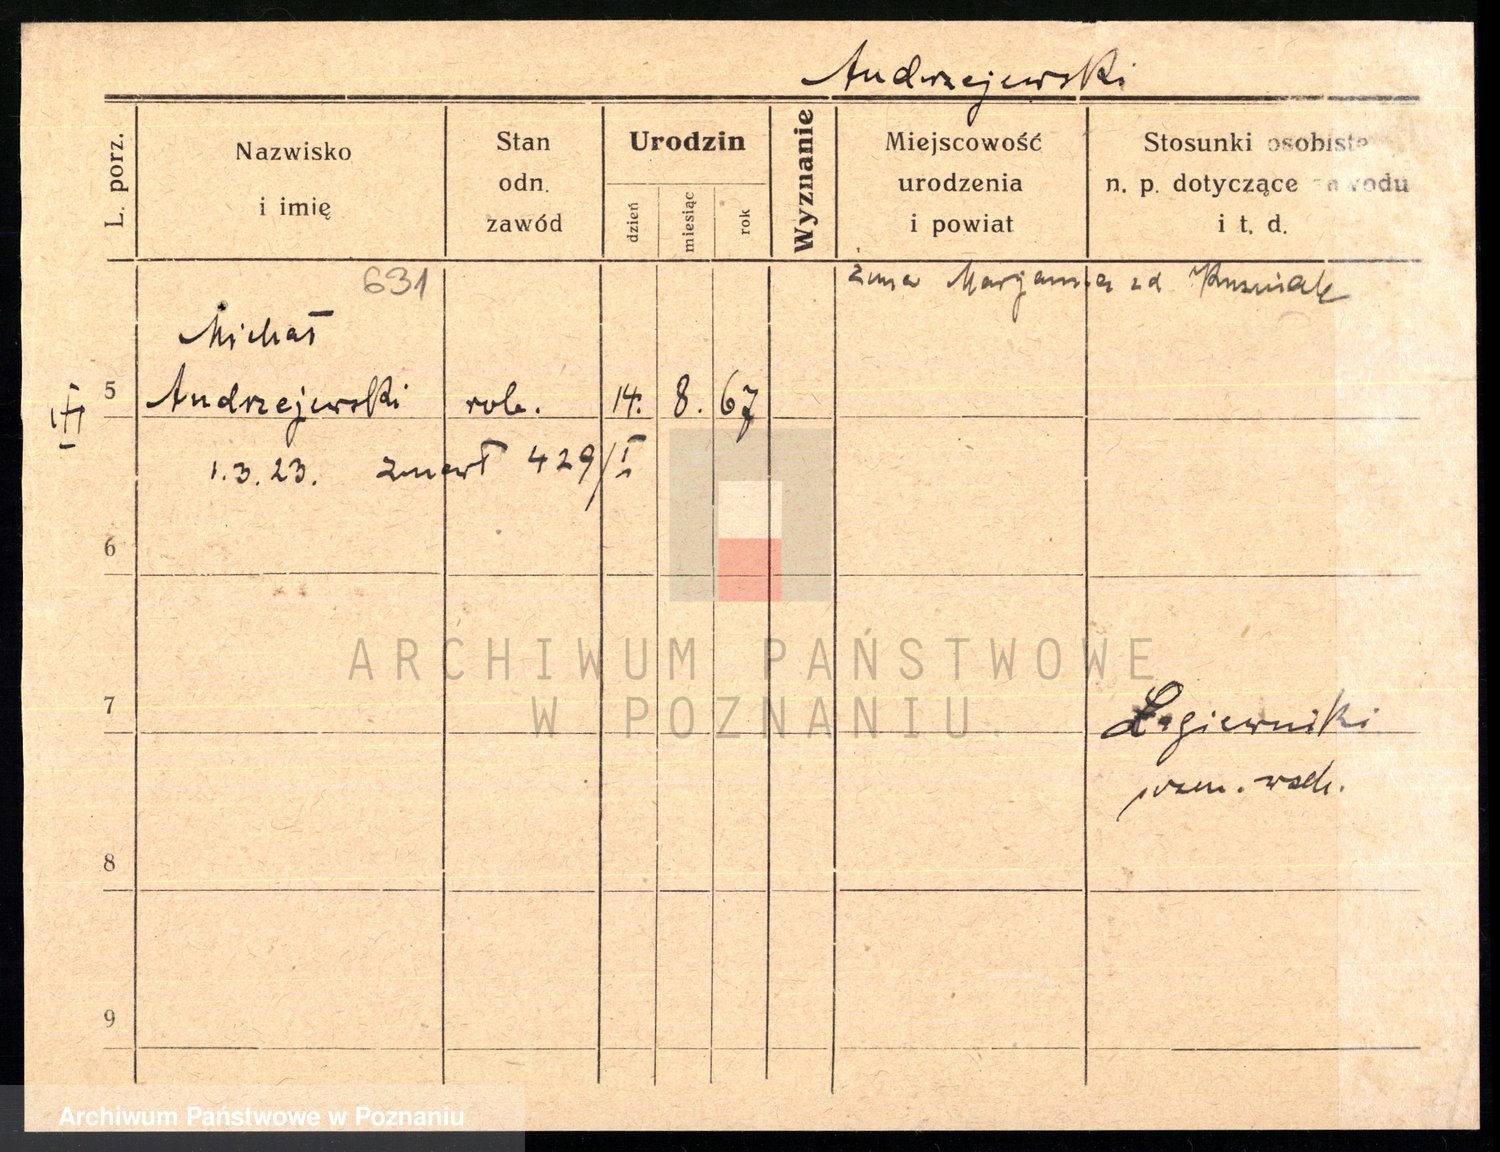 Andrzejewski
L. porz.
Nazwisko
i imię
Stan
odn.
zawód
Urodzin
dzień
miesiąc
rok
Wyznanie
Miejscowość
urodzenia
i powiat
Stosunki osobiste
n. p. dotyczące zawodu
i t. d.
631
żona Marjanna zd
Michał
5 Andrzejewski rob. 14. 8. 67
1.3.23. zmarł 429/I
6
ARCHIWUM PAŃSTWOWE
W POZNANIU
7
8
9
Archiwum Państwowe w Poznaniu